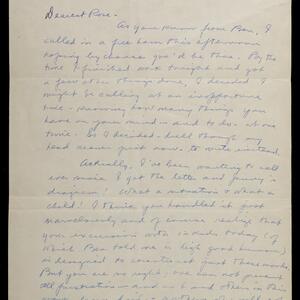 Dearest Rose -
As you know from Ben, I
called in a free hour this afternoon
hoping by chance you'd be there. By the
time I finished our and got
a few other things done, I decided I
might be calling at an inopportune
time - knowing how many things you
have on your mind - and to do - at one
time. So I decided - tho
to write instead.
Actually, I've been wanting to call
ever since I got the letter and
diagram! What a situation & what a
child! I think you handled it just
marvelously and of course realize that
your excursion with today (of
which Ben told me in high good humor)
is designed to
But you are no right; we can not prevent
all frustration - and others in this